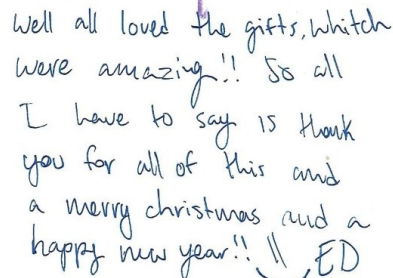 Well all loved the gifts, whitch
were amazing!! So all
I have to say is thank
you for all of this and
a merry christmas and a
happy new year!! \\ ED